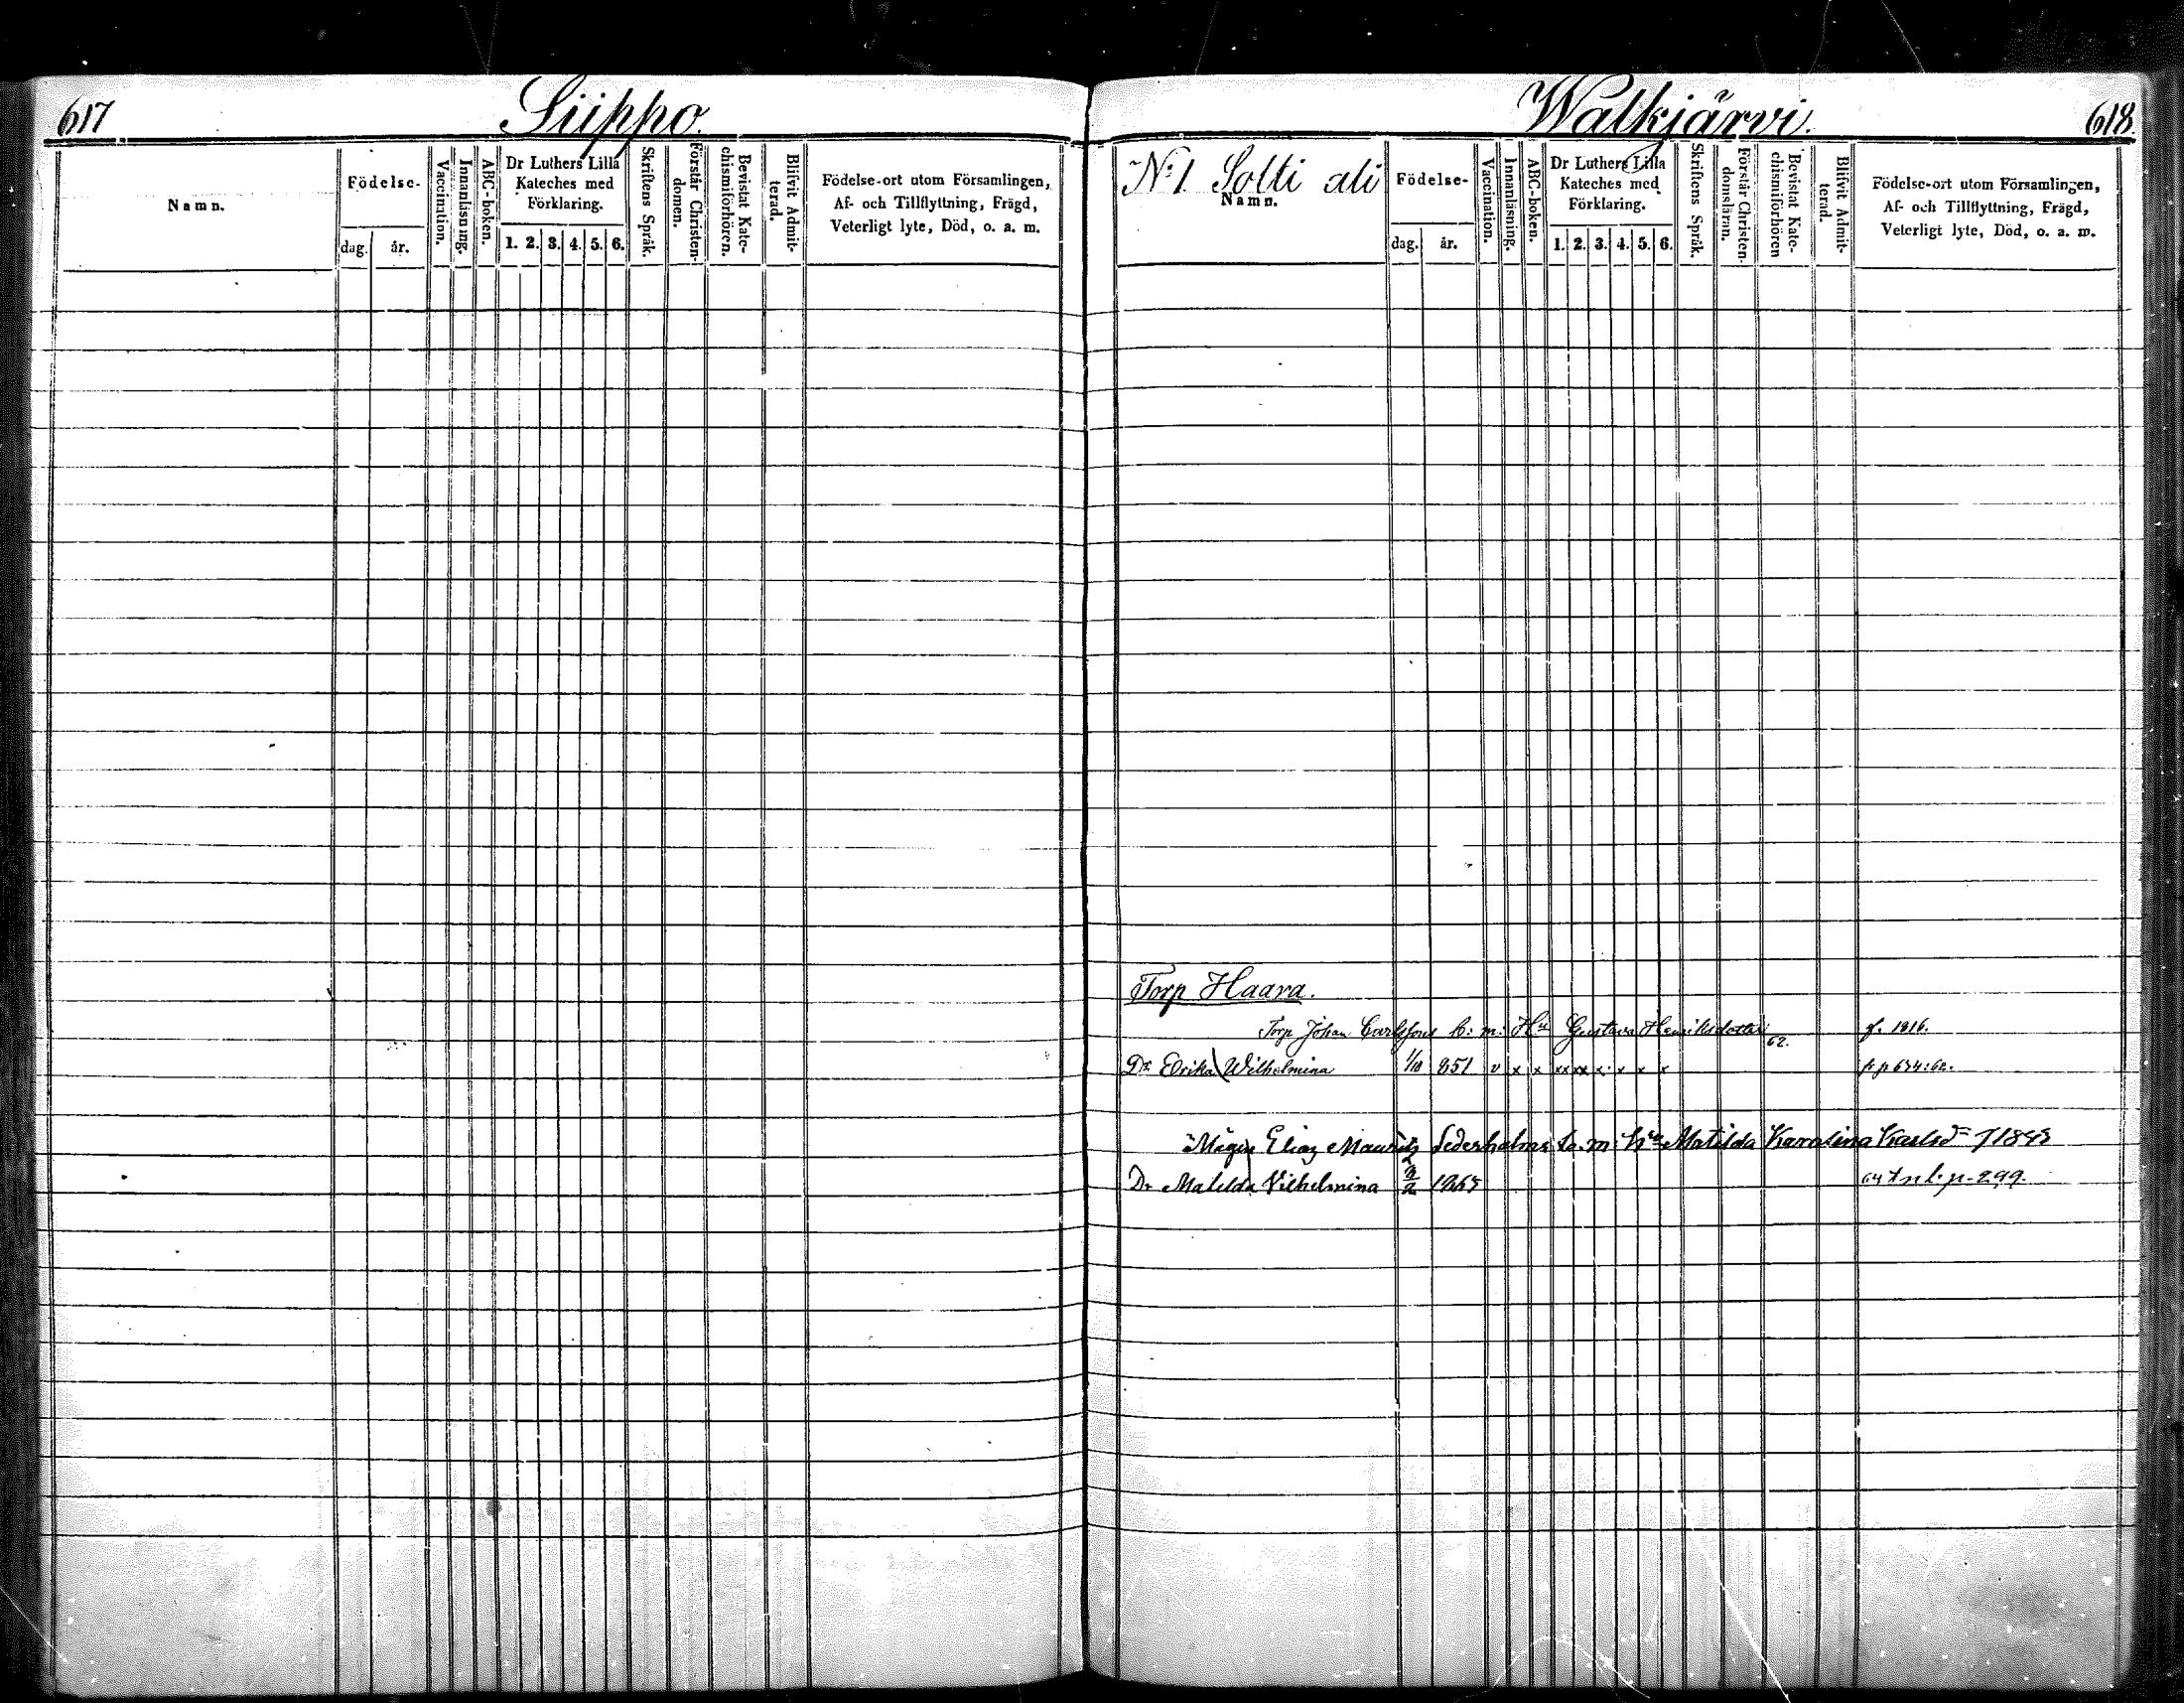 617
Siippo.
Namn.
Födelse-
dag. år.
Vaccination.
Innanläsning.
ABC-boken.
Dr Luthers Lilla
Kateches med
Förklaring.
1. 2. 3. 4. 5. 6.
Skriftens Språk.
Förstår Christen-
domen.
Bevistat Kate-
chismiförhören.
Blifvit Admit-
terad.
Födelse-ort utom Församlingen,
Af- och Tillflyttning, Frägd,
Veterligt lyte, Död, o. a. m.
Walkjärvi.
618.
N:1 Solti ali
Namn.
Födelse-
dag. år.
Vaccination.
Innanläsning.
ABC-boken.
Dr Luthers Lilla
Kateches med
Förklaring.
1. 2. 3. 4. 5. 6.
Skriftens Språk.
Förstår Christen-
domsläran.
Bevistat Kate-
chismiförhören
Blifvit Admit-
terad.
Födelse-ort utom Församlingen,
Af- och Tillflyttning, Frägd,
Veterligt lyte, Död, o. a. m.
Torp Haara.
Torp Johan Carlssons b: m: Hu Gustava Henriksdotter f. 1816.
62.
Dr Erika Wilhelmina 1/10 851 v x x xx xx x x x x fr p 634:62.
Mågen Eliaz Mauritz Sederholms b. m. hu Matilda Karolina Karlsd
Dr Matilda Vilhelmina
p. 299.